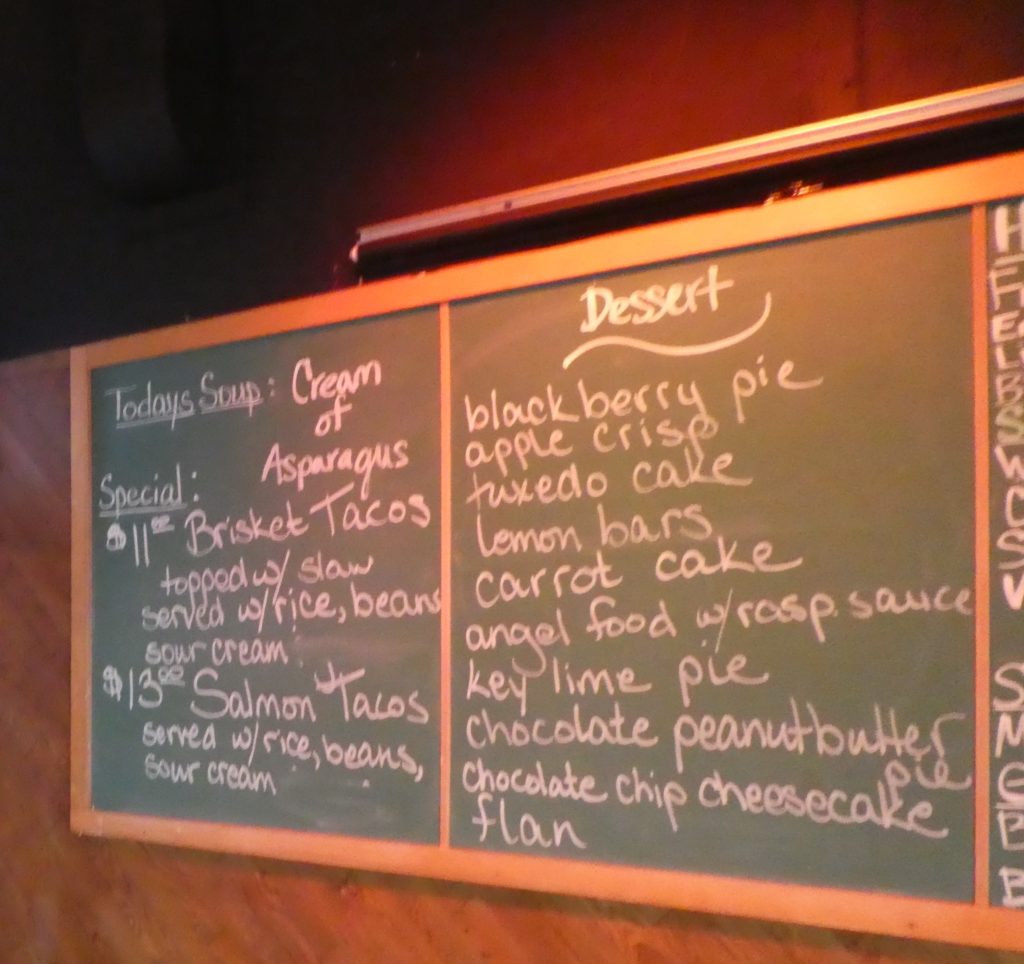 Todays Soup: Cream
of
Asparagus
Special:
$11⁰⁰ Brisket Tacos
topped w/ slaw
served w/rice, beans
sour cream
$13⁰⁰ Salmon Tacos
served w/rice, beans,
sour cream
Dessert
blackberry pie
apple crisp
tuxedo cake
lemon bars
carrot cake
angel food w/rasp. sauce
key lime pie
chocolate peanutbutter
pie
chocolate chip cheesecake
flan